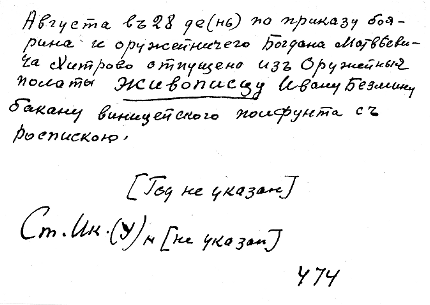 Августа въ 28 де(нь) по приказу боя-
рина и оружейничего Богдана Матвѣеви-
ча Хитрово отпущено изъ Оружейныи
полаты живописцу Ивану Безмину
бакану виницейского полфунта съ
роспискою.
[Год не указан]
Ст. Ик. (У) н [не указан]
474